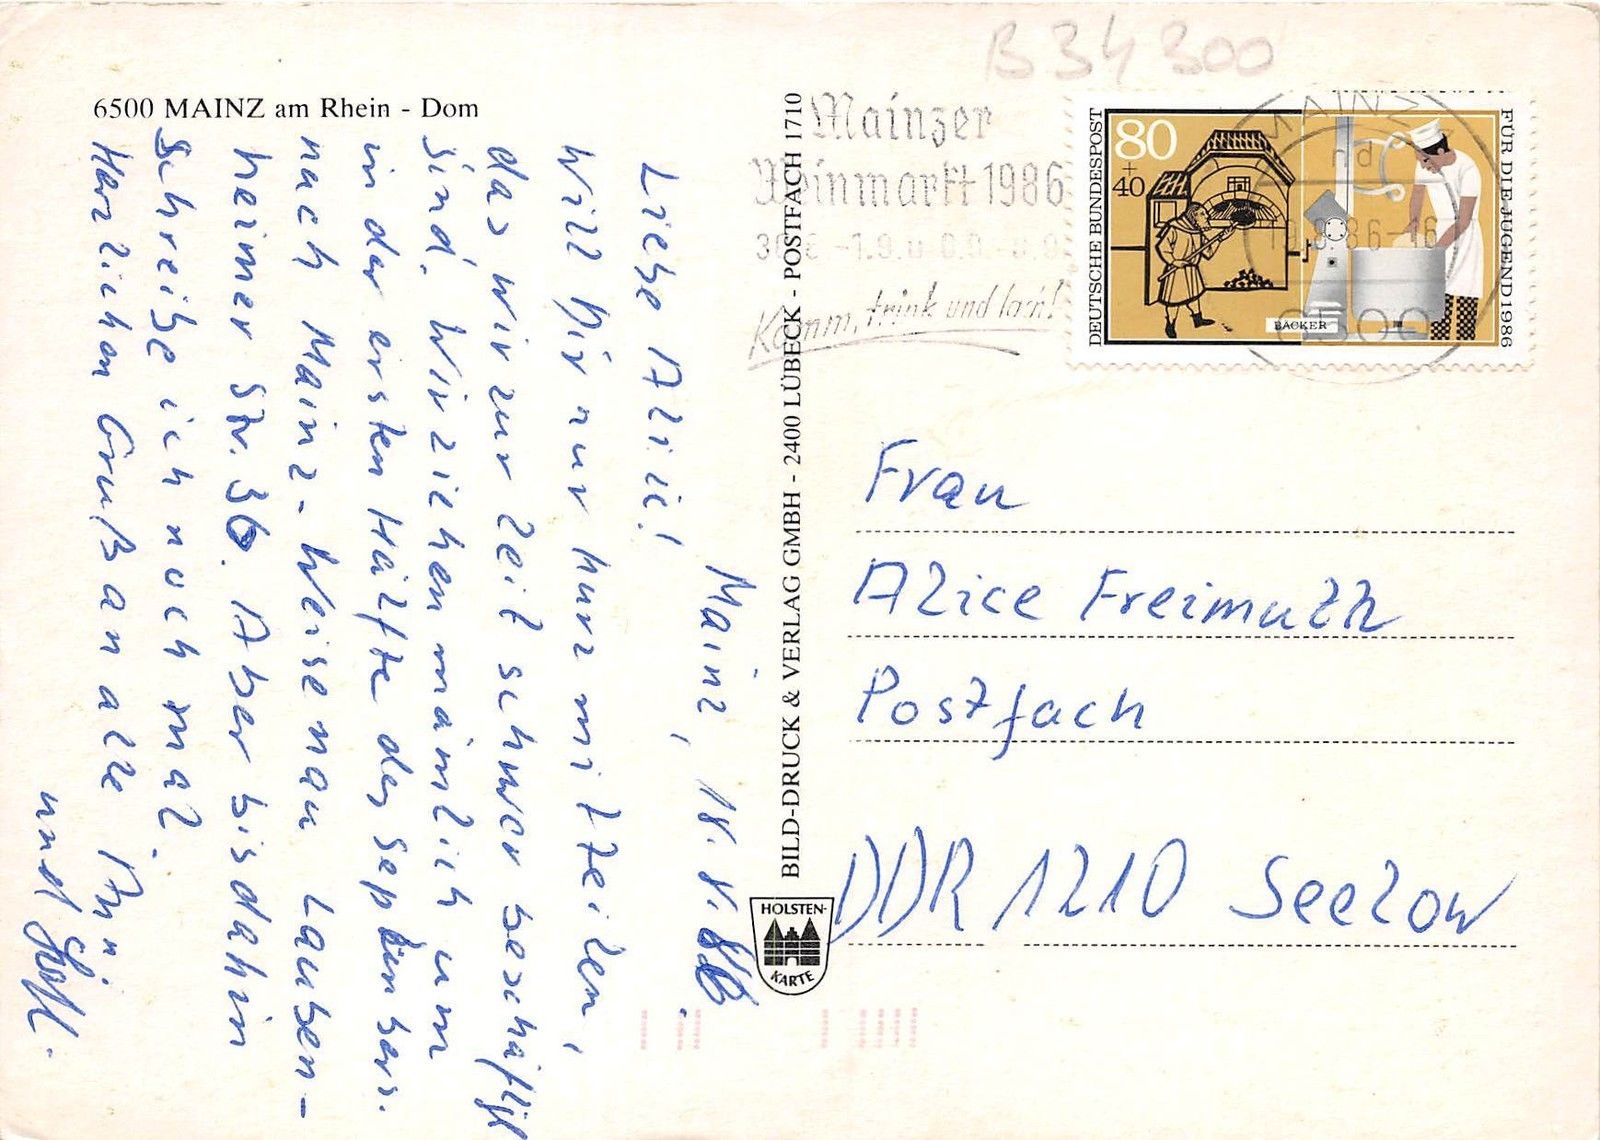 B 34 300
6500 MAINZ am Rhein - Dom
Mainz, 18.8.86.
Liebe Alice!
Will Dir nur kurz mitteilen,
das wir zur Zeit schwer beschäftigt
sind. Wir ziehen nämlich um
in der ersten Hälfte des Septembers.
nach Mainz-Weisenau Lauben-
heimer Str. 36. Aber bis dahin
schreibe ich noch mal.
Herzlichen Gruß an alle
und
BILD-DRUCK & VERLAG GMBH - 2400 LÜBECK - POSTFACH 1710
HOLSTEN-
KARTE
Mainzer
Weinmarkt 1986
Komm, trink und lach!
DEUTSCHE BUNDESPOST
80
+
40
BÄCKER
FÜR DIE JUGEND 1986
MAINZ
19.8.86-16
6500
Frau
Alice Freimuth
Postfach
DDR 1210 Seelow